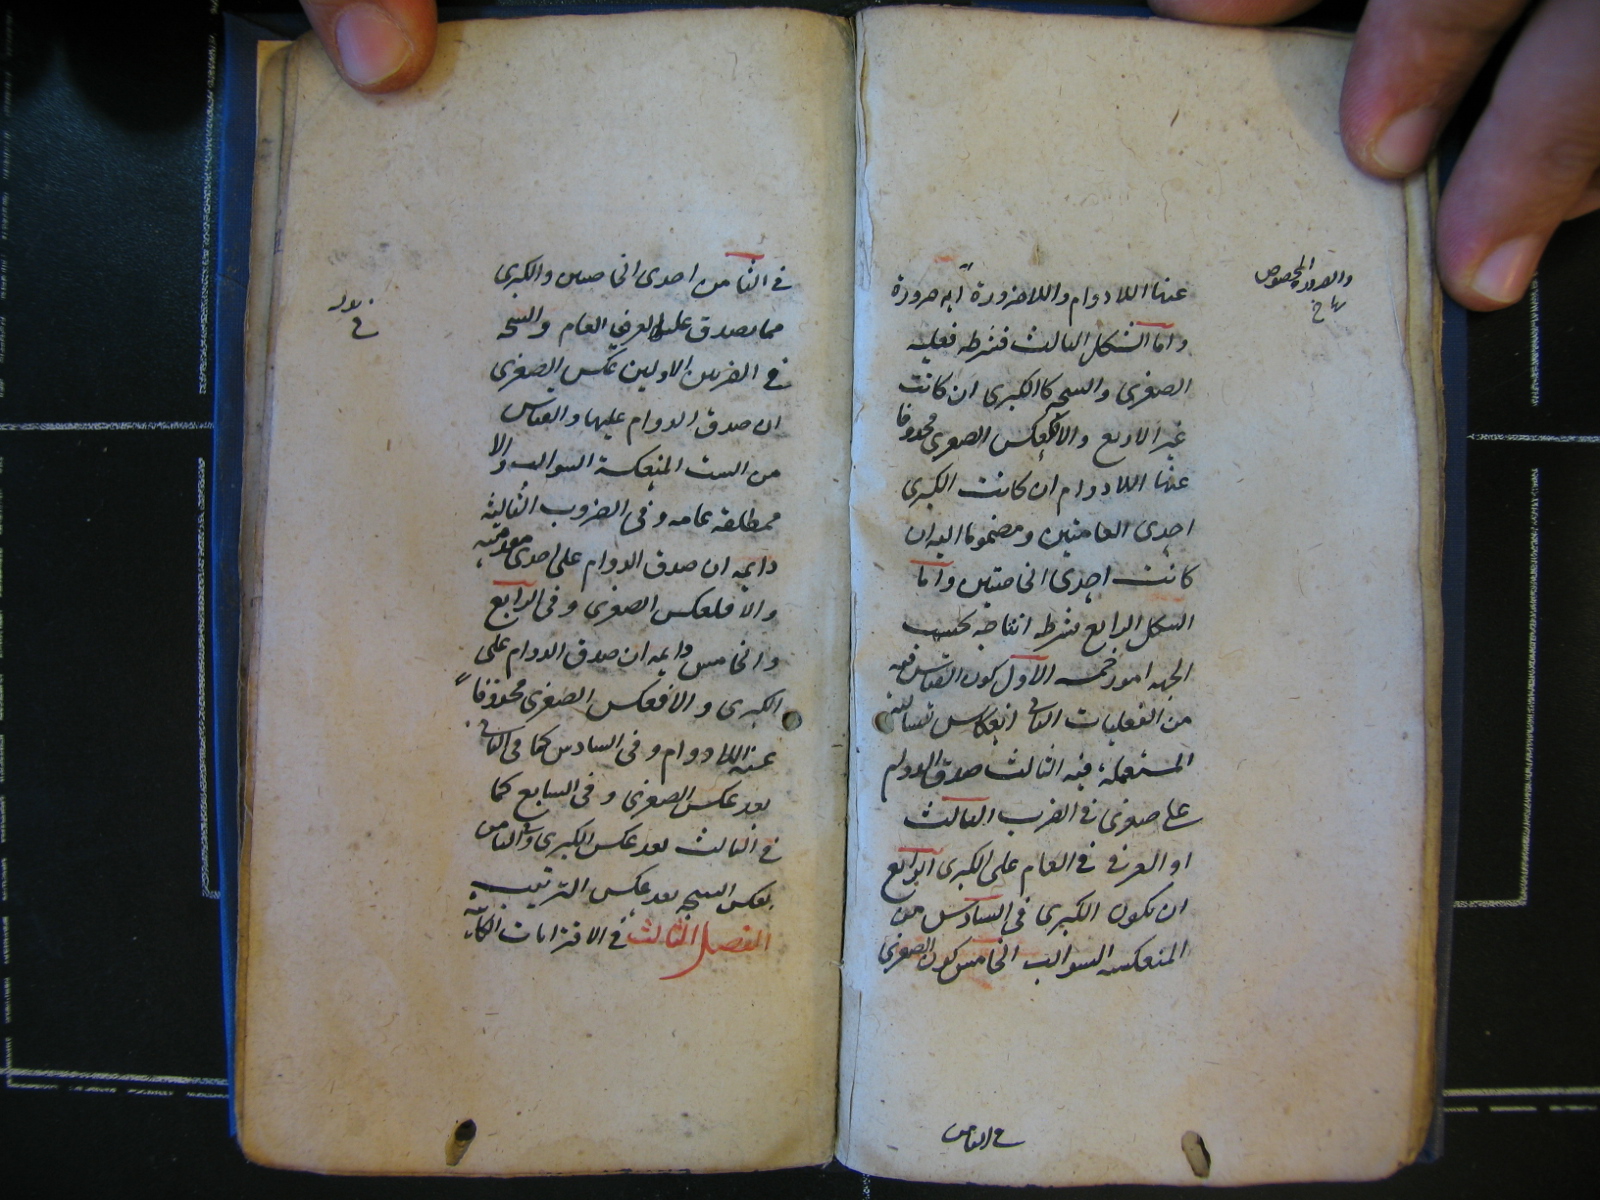 عنها اللادوام واللاضرورة اية ضرورة
والضرورة المخصوصة
بها خ
واما الشكل الثالث فشرطه فعلية
الصغرى والنتيجة كالكبرى ان كانت
غير الاربع والا كعكس الصغرى محذوفا
عنها اللادوام ان كانت الكبرى
احدى العامتين ومضموما اليه ان
كانت احدى الخاصتين واما
الشكل الرابع فشرط انتاجه بحسب
الجهة امور خمسة الاول كون القياس فيه
من الفعليات الثانى انعكاس السالبة
المستعملة فيه الثالث صدق الدوام
على صغرى فى الضرب الثالث
او العرفى العام على الكبرى الرابع
ان يكون الكبرى فى السادس من
المنعكسة السوالب الخامس كون الصغرى
فى الثامن
فى الثامن من احدى الخاصتين والكبرى
مما يصدق عليها العرفي العام والنتيجة
فى الضربين الاولين عكس الصغرى
ان صدق الدوام عليها والقياس
من الست المنعكسة السوالب والا
فمطلقة عامة وفى الضروب الثالث
دايمة ان صدق الدوام على احدى مقدمتيه
والا فكعكس الصغرى وفى الرابع
والخامس دايمة ان صدق الدوام على
الكبرى والا فعكس الصغرى محذوفا
عنه اللادوام وفى السادس كما فى الثانى
بعد عكس الصغرى وفى السابع كما
فى الثالث بعد عكس الكبرى وفى الثامن
بعكس النتيجة بعد عكس الترتيب
الفصل الثالث فى الاقترانيات الكائنة